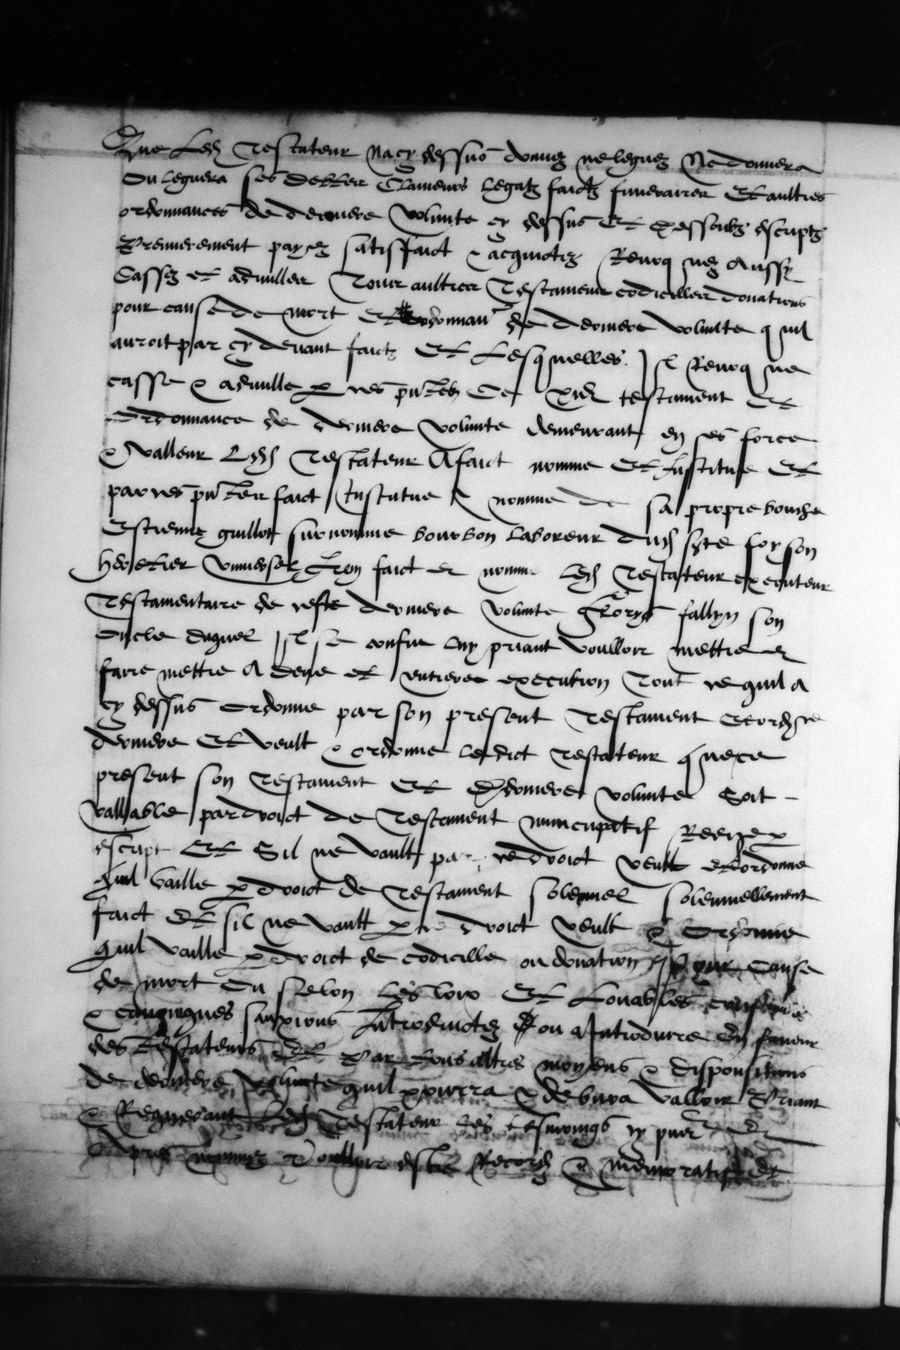 Que Led Testateur na cy dessus donnez ne leguez Ne donnera
Ou leguera ses debtes Clameurs legatz faictz funeraires Et aultres
ordonnances de derniere volunte cy dessus Et dessoubz escriptz
Premierement payez satisfaict & acquictez Revoquez Aussy
Cassez et adnuller Tour aultres Testamens codicilles donations
pour cause de mort Et ordonnan de derniere volunte quil
auroit par cy devant faictz Et Lesquelles Il Revoque
casse & adnulle par ces pntes Ce testament Et
Ordonnance de derniere volunte demeurant en ses force
& valleur Led Testateur A faict nomme Et Institue Et
par ces pntes faict Institue & nomme de sa propre bouche
Estienne guillot surnomme bourbon laboreur dud son
heretier universel Et faict et nomme Led Testateur executeur
Testamentaire de ceste derniere volunte son
oncle duquel Il se confie luy priant voulloir mettre et
faire mettre A deue et entiere execution Tout ce quil a
cy dessus Ordonne par son present Testament
derniere Et veult & ordonne ledict testateur que ce
present son Testament Et derniere volunte Soit
vallable par droict de Testament nuncupatif
escript Et Sil ne vault par ce droict veult et ordonne
quil vaille par droict de Testament solempnel solempnellement
faict Et sil ne vault par ce droict veult & Ordonne
quil vaille par droict de codicille ou donation pour cause
de mort Ou selon les loix Et Louables
& canoniques sanxions Introduictes ou a Introduire En faveur
des testateurs Et Par tous altres moyens & dispositions
de derniere volunte quil pourra & debvra valloir Priant
& Requerant Led Testateur les tesmoings cy
Apres nommez voulloir estre Records & memoratifz de